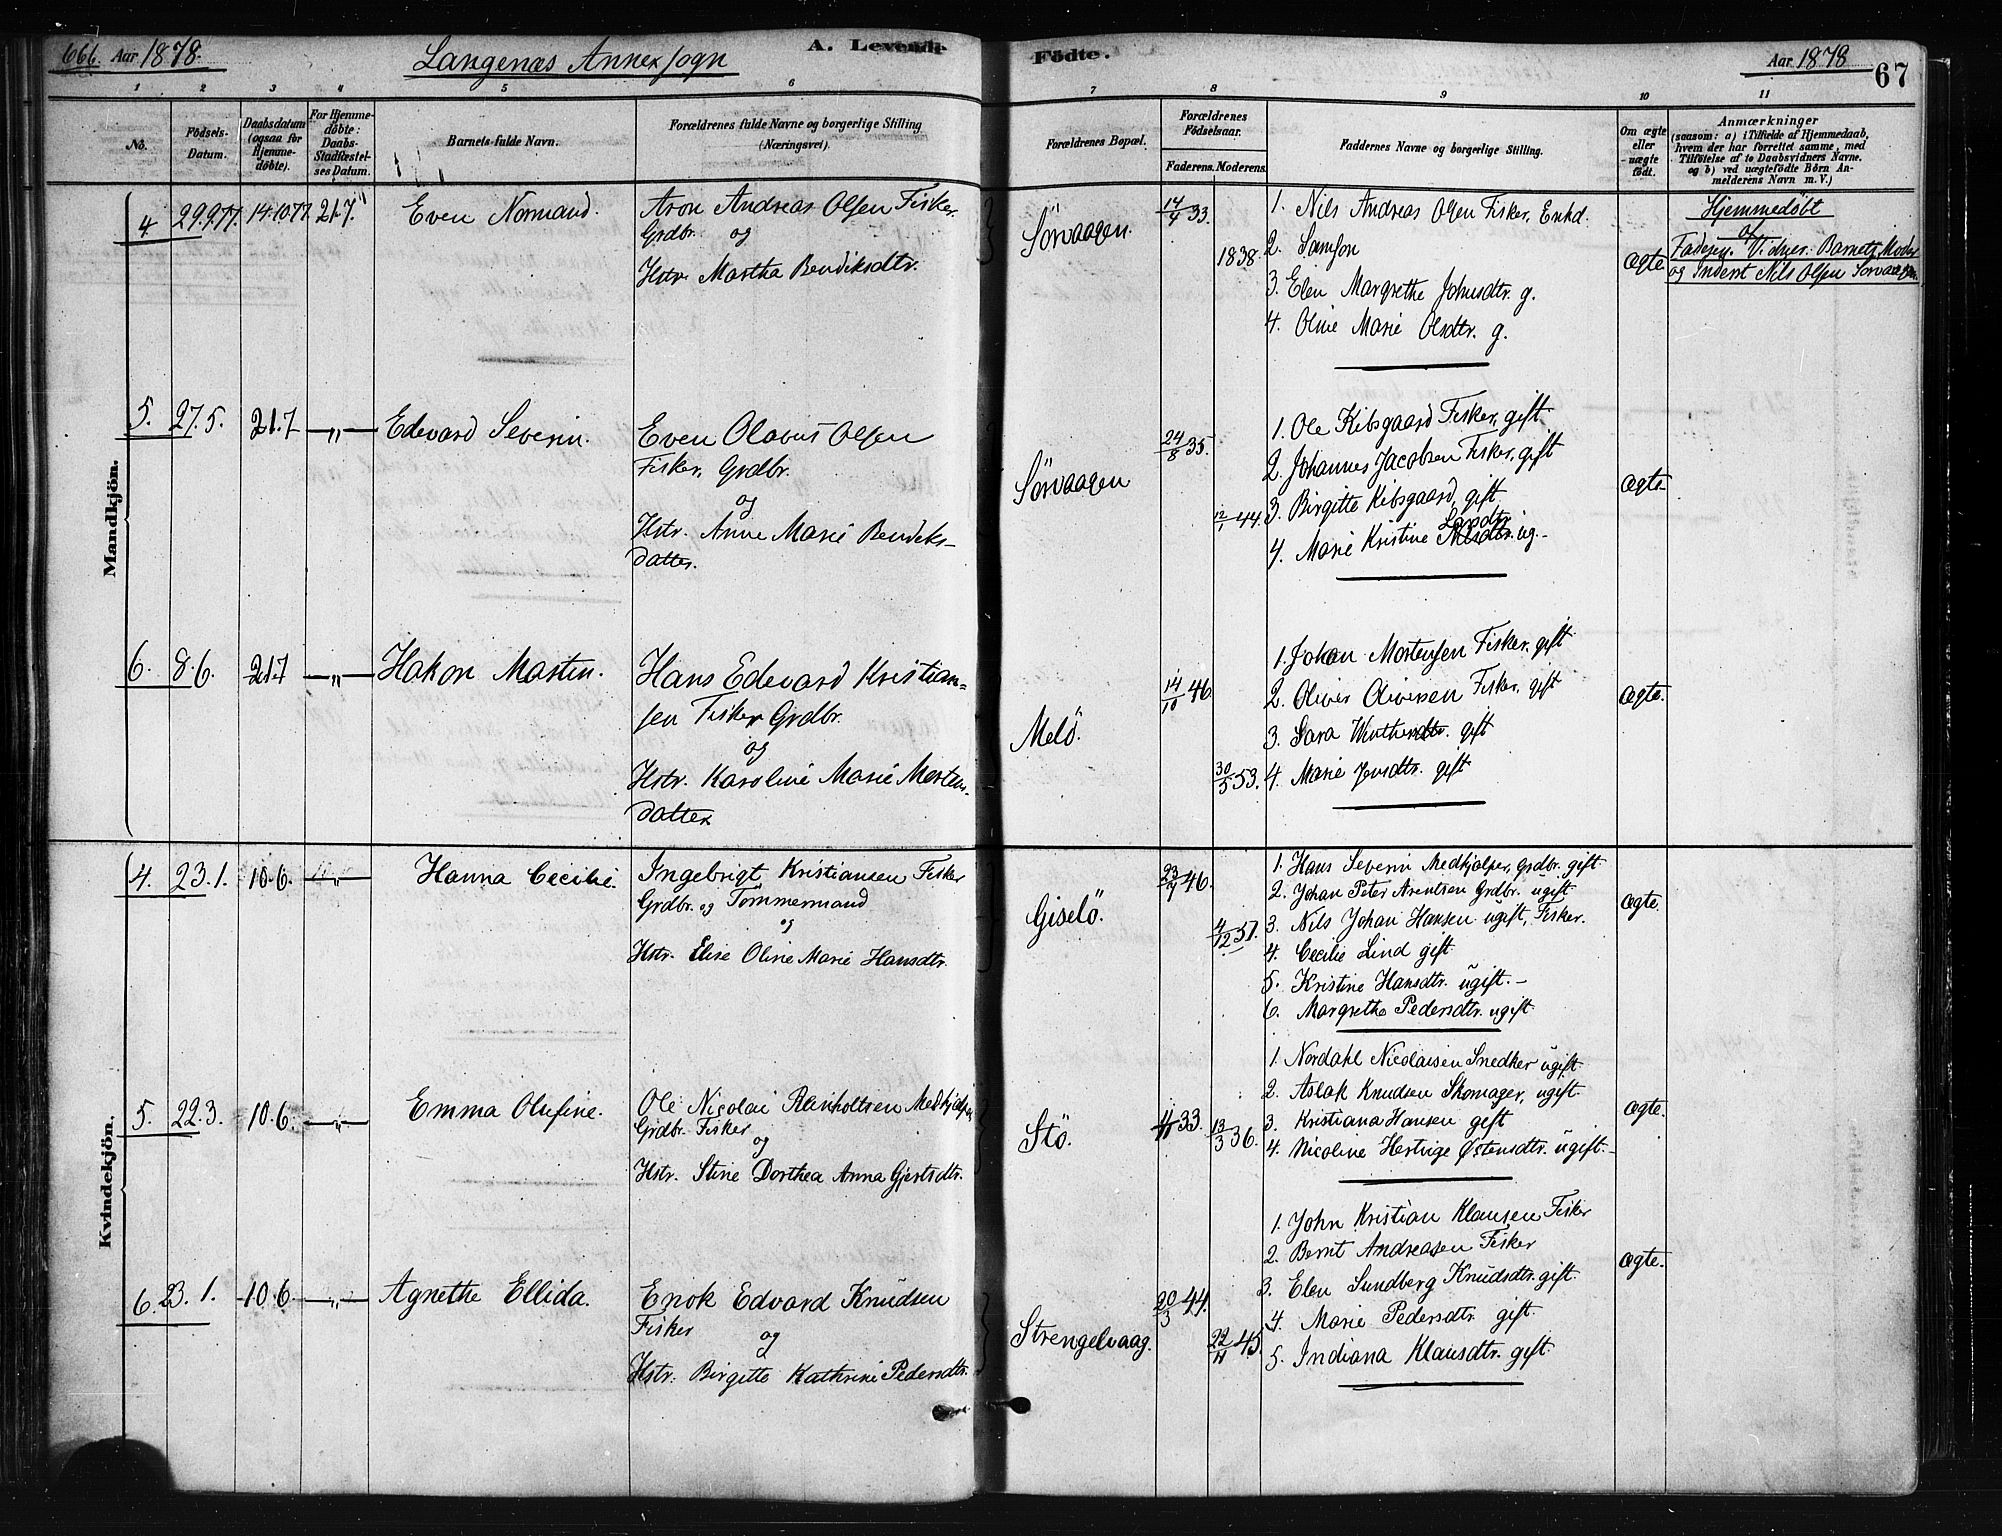 666. Aar 1878.
Langenæs Annexsogn
A. Levende
Födte.
Aar 1878
67
1 2 3 4 5 6 7 8 9 10 11
No.
Födsels-
Datum.
Daabsdatum
(ogsaa for
Hjemme-
døbte).
For Hjemme-
døbte:
Daabs-
Stadfæstel-
ses Datum.
Barnets fulde Navn.
Forældrenes fulde Navne og borgerlige Stilling
(Næringsvei).
Forældrenes Bopæl.
Forældrenes
Födselsaar.
Faderens. Moderens.
Faddernes Navne og borgerlige Stilling.
Om ægte
eller
uægte
født.
Anmærkninger
(saasom: a) i Tilfælde af Hjemmedaab,
hvem der har forrettet samme, med
Tilføielse af to Daabsvidners Navne.
og b) ved uægtefödte Börn An-
melderens Navn m. V.)
Mandkjön.
4 29.9.77. 14.10.77. 21.7. Even Normand.
Aron Andreas Olsen Fisker.
Grdbr. og
Hstr. Martha Bendiksdtr.
Sörvaagen.
14/4 33.
1838.
1. Nils Andreas Olsen Fisker, Enkd.
2. Samson
3. Elen Margrethe Johnsdtr. g.
4. Oline Marie Olsdtr. g.
Ægte.
Hjemmedøbt
af
Faderen. Vidner: Barnets Moder
og Inderst Nils Olsen Sörvaagen.
5. 27.5. 21.7 —„— Edevard Severin.
Even Olavus Olsen
Fisker, Grdbr.
og
Hstr. Anne Marie Bendiks-
datter.
Sörvaagen
24/8 35.
12/1 44.
1. Ole Kibsgaard Fisker, gift
2. Johannes Jacobsen Fisker, gift
3. Birgitte Kibsgaard, gift.
4. Marie Kristine ug.-
Ægte.
6. 8.6. 21.7 —„— Hakon Martin.
Hans Edevard Kristian-
sen Fisker Grdbr.
og
Hstr. Karoline Marie Mortens-
datter
Melö.
14/10 46
30/5 53.
1. Johan Mortensen Fisker, gift
2. Oliver Oliversen Fisker, gift
3. Sara Wintherdtr. gift
4. Marie Jensdtr. gift
Ægte.
Kvindekjön.
4. 23.1. 10.6. —„— Hanna Cecilie.
Ingebrigt Kristiansen Fisker
Grdbr. og Tömmermand
og
Hstr. Elise Oline Marie Hansdtr.
Giselö.
23/9 46.
4/12 51.
1. Hans Severin Medhjelper, Grdbr. gift
2. Johan Peter Arentsen Grdbr. ugift
3. Nils Johan Hansen ugift, Fisker.
4. Cecilie Lind gift
5. Kristine Hansdtr. ugift.-
6. Margrethe Pedersdtr. ugift
Ægte.
5. 22.3. 10.6. —„— Emma Olufine.
Ole Nicolai Reinholtsen Medhjelper
Grdbr. Fisker
og
Hstr. Stine Dorthea Anna Gjertsdtr.
Stö.
33.
13/3 36.
1. Nordahl Nicolaisen Snedker ugift
2. Aslak Knudsen Skomager, ugift.
3. Kristiana Hansen gift
4. Nicoline Hertvige Østensdtr. ugift.-
Ægte.
6. 23.1. 10.6. —„— Agnethe Ellida.
Enok Edvard Knudsen
Fisker
og
Hstr. Birgitte Kathrine Pedersdtr.
Strengelvaag.
20/3 44.
22/11 45.
1. John Kristian Klausen Fisker
2. Bernt Andreasen Fisker
3. Elen Sundberg Knudsdtr. gift.
4. Marie Pedersdtr. gift
5. Indiana Klausdtr. gift.
Ægte.